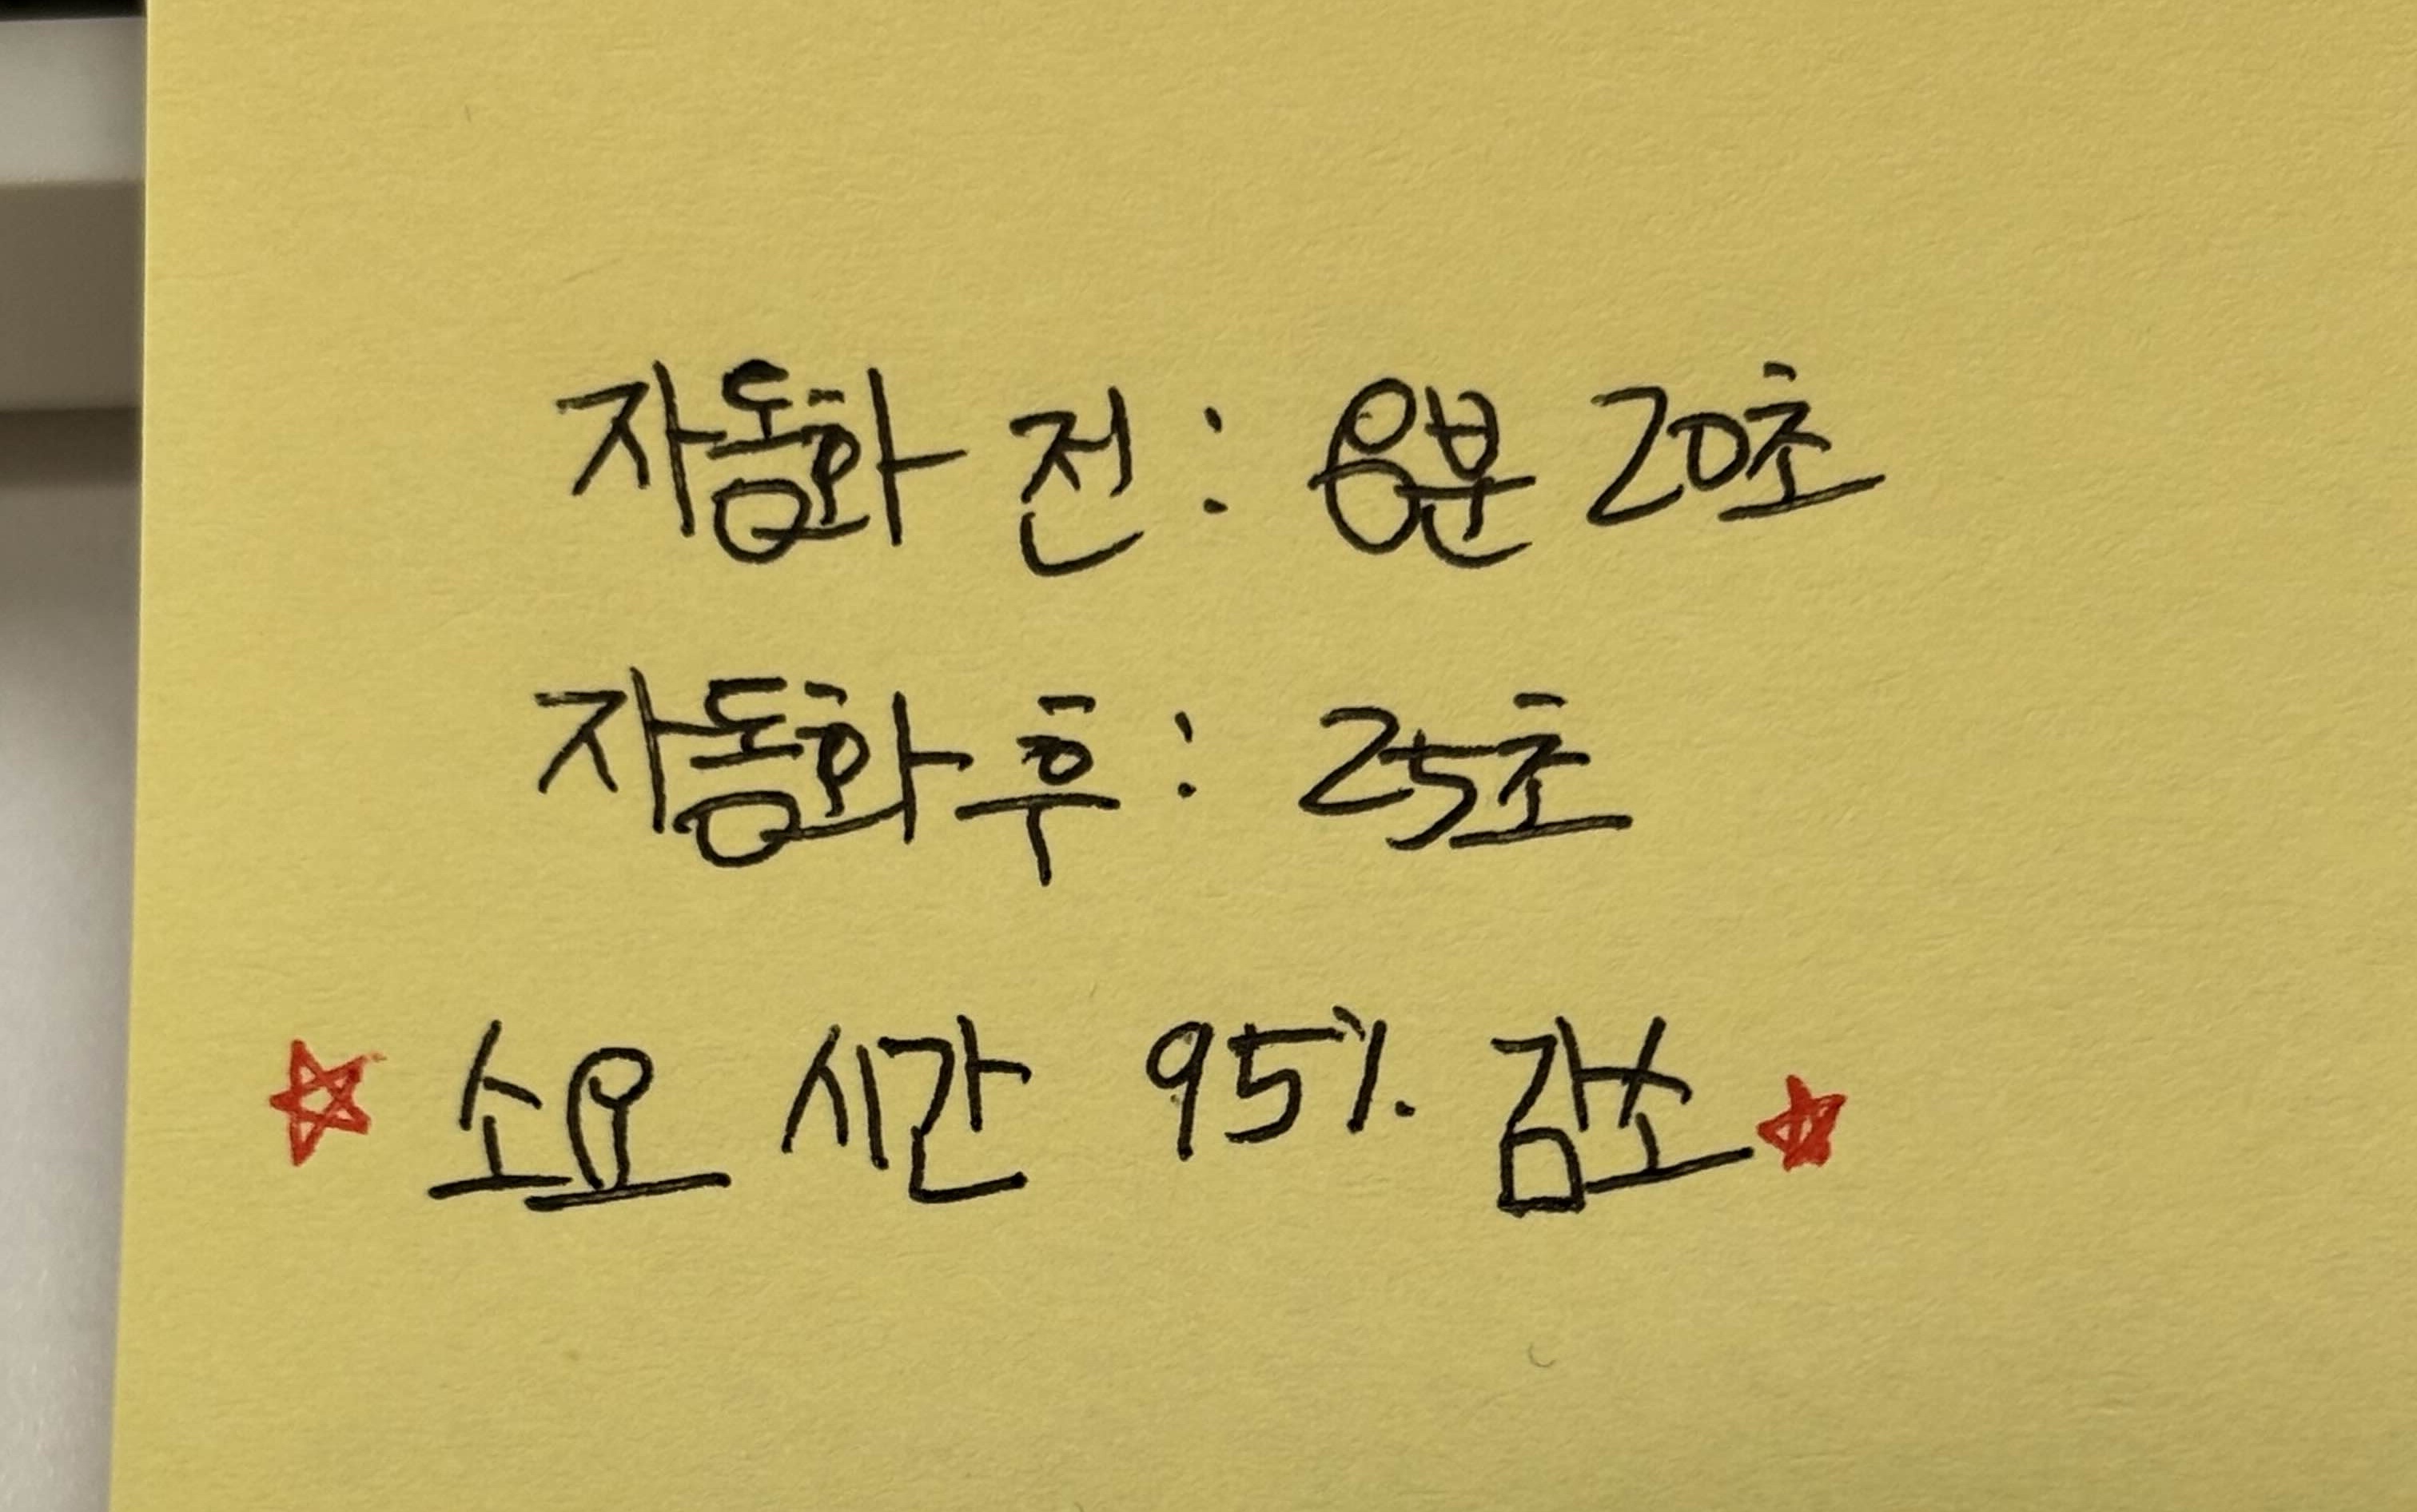 자동화 전 : 8분 20초
자동화 후 : 25초
☆ 소요 시간 95% 감소 ☆